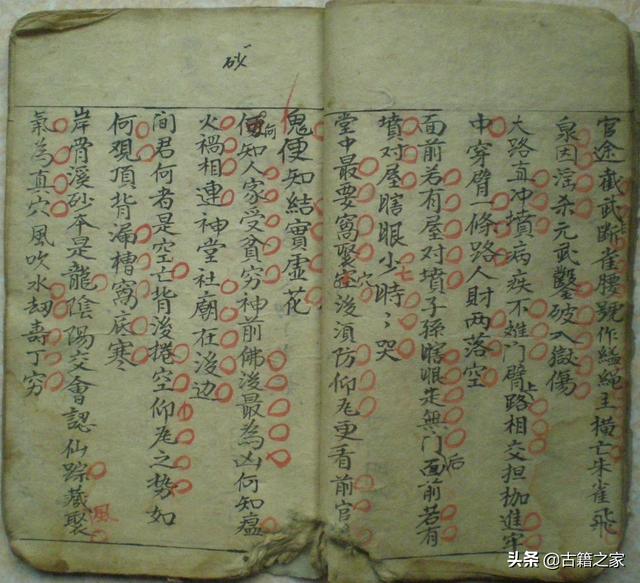 官途截武断雀腰號作缢繩主横亡朱雀飛
泉因滛杀元武鑿破入獄傷
大路直冲墳病疾不離門臂路相交担枷進牢
上
中穿臂一條路人財两落空
面前若有屋对墳子孫瞎眼走無門面前若有
后
墳对屋瞎眼少時〻哭
七
堂中最要窩聚後湏防仰瓦更看前官
穴
鬼便知結實虚花
何
便知人家受貧穷神前佛後最為凶何知瘟
火禍相連神堂社廟在後边
间君何者是空亡背後捲空仰瓦之势如
何观頂背漏槽窩底寒
岸骨溪砂本是龍陰陽交會認仙踪藏聚
風
氣為真穴風吹水刼壽丁穷
砂
头条 @古籍之家